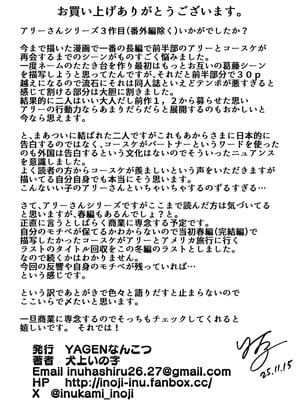 お買い上げありがとうございます。
アリーさんシリーズ3作目(番外編除く)いかがでしたか？
今まで描いた漫画で一番の長編で前半部のアリーとコースケが
再会するまでのシーンがものすごく悩みました。
一度ネームのたたき台を作り最初はもっとお互いの葛藤シーン
を描写しようと思ってたんですが、それだと前半部分で30p
越えになるので流石にそれは同人誌といえどテンポが悪すぎると
感じて割ける部分は大胆に割きました。
結果的に二人はいい大人だし前作1，2から募らせた思い
アリーの行動力ならあまりだらだらと展開するのもおかしいと
今なら思えます。
と、まあついに結ばれた二人ですがこれもあからさまに日本的に
告白するのではなく、コースケがパートナーというワードを使った
のも外国は告白するという文化はないのでそういったニュアンス
を意識しました。
よく読者の方からコースケが羨ましいという声をいただきますが
描いてる自分自身でも本当にそう思います。
こんないい子のアリーさんといちゃいちゃするのずるすぎる…
さて、アリーさんシリーズですがここまで読んだ方は気づいてる
と思いますが、春編もあるんでしょ？と。
正直に言うとしばらく商業に専念する予定です。
自分のモチベが保てるかわからないので当初春編(完結編)で
描写したかったコースケがアリーとアメリカ旅行に行く
ラストのタイトル回収をこの冬編のラストとしました。
なので続くかはわかりません。
今回の反響や自身のモチベが残っていれば…
という感じです。
という訳であとがきで色々と語りだすと止まらないので
ここいらで〆たいと思います。
一旦商業に専念するのでそっちもチェックしてくれると
嬉しいです。 それでは！
発行　YAGENなんこつ
著者　犬上いの子
Email inuhashiru26.27@gmail.com
HP　http://inoji-inu.fanbox.cc/
X　@inukami_inoji
25.11.15